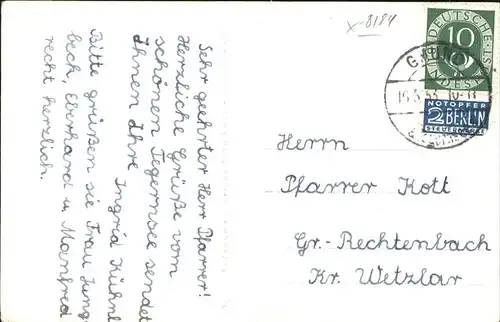 x-8184
Sehr geehrter Herr Pfarrer!
Herzliche Grüße vom
schönen Tegernsee sendet
Ihnen Ihre
Ingrid Kühnl
Bitte grüßen sie Frau Jung
beck, Eberhard u. Manfred
recht herzlich.
DEUTSCHE
10
BUNDESPOST
GMUND
16.5.53.10-11
NOTOPFER
2 BERLIN
STEUERMARKE
Herrn
Pfarrer Kott
Gr.-Rechtenbach
Kr. Wetzlar